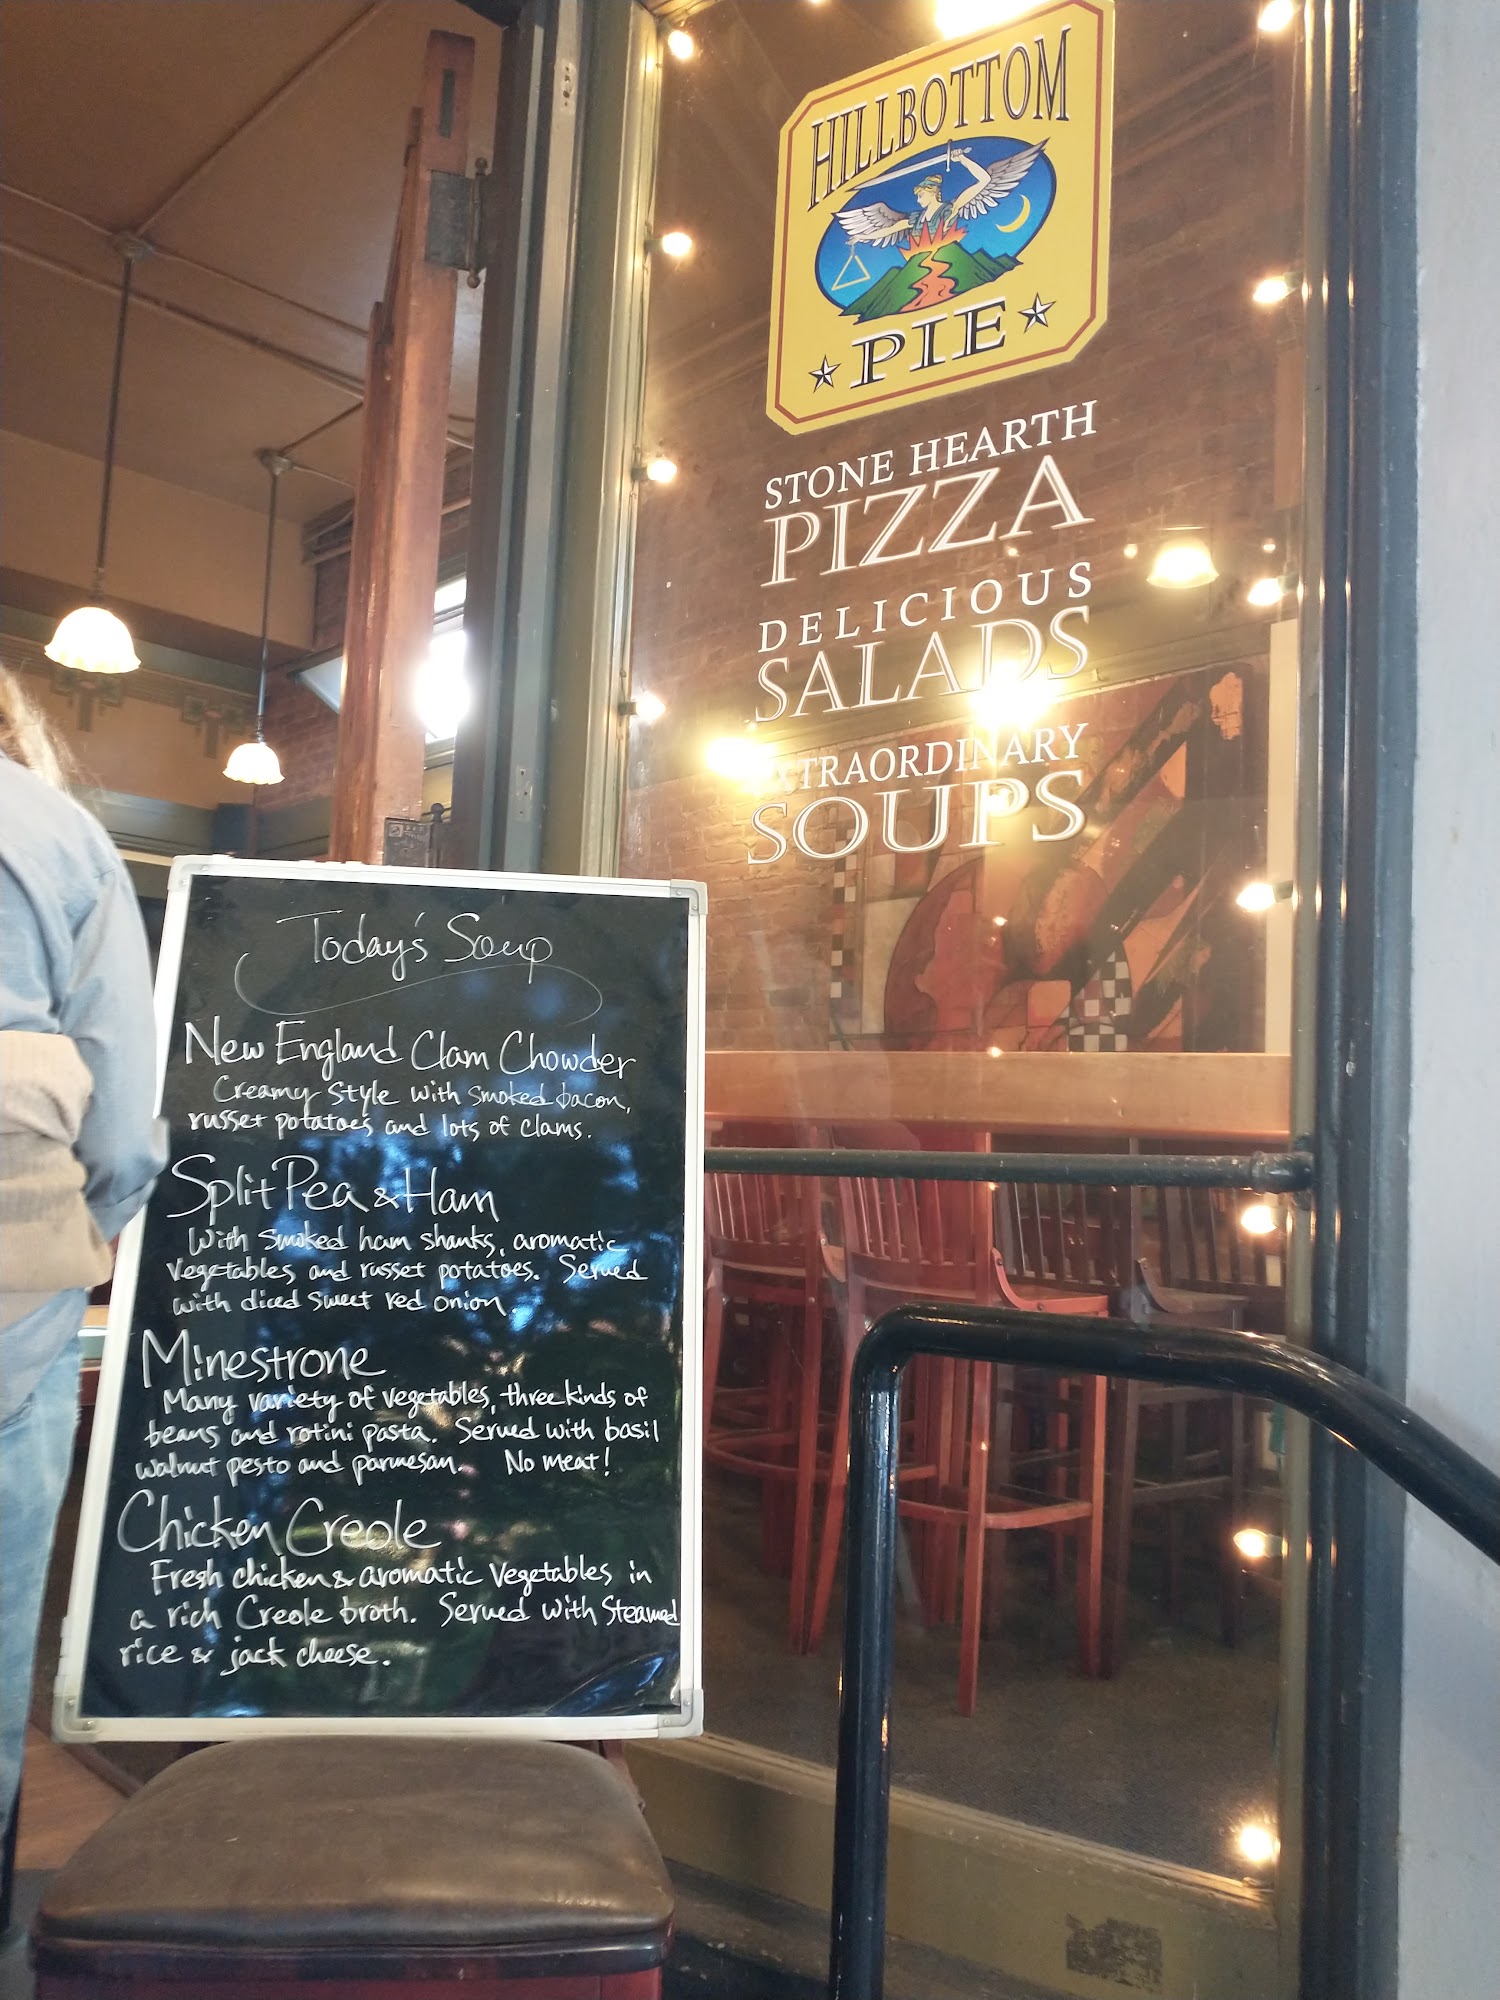 HILLBOTTOM
PIE
STONE HEARTH
PIZZA
DELICIOUS
SALADS
EXTRAORDINARY
SOUPS
Today's Soup
New England Clam Chowder
Creamy style with smoked bacon,
russet potatoes and lots of clams.
Split Pea & Ham
With smoked ham shanks, aromatic
vegetables and russet potatoes. Served
with diced sweet red onion.
Minestrone
Many variety of vegetables, three kinds of
beans and rotini pasta. Served with basil
walnut pesto and parmesan. No meat!
Chicken Creole
Fresh chicken & aromatic vegetables in
a rich Creole broth. Served with steamed
rice & jack cheese.